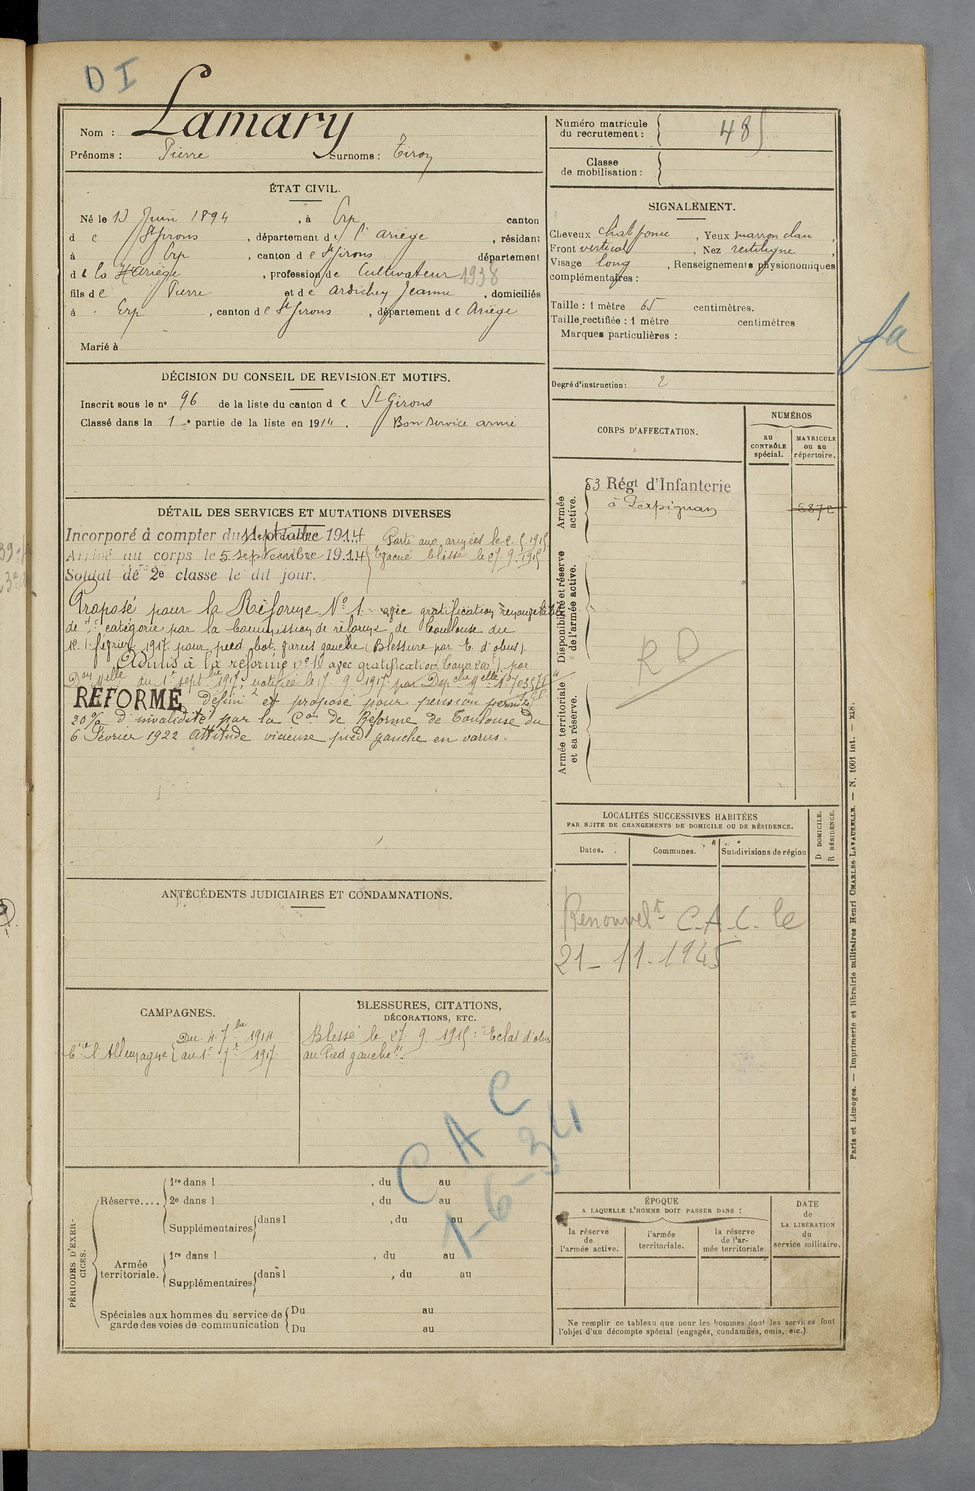 DI
Nom : Lamary
Prénoms : Pierre Surnoms : Tiroy
ÉTAT CIVIL.
Né le 13 Juin 1894, à Erp canton
d e St Girons, département de l'Ariège, résidant
à Erp, canton de St Girons département
de la Hte Ariège, profession de Cultivateur 1938
fils de Pierre et de Ardichey Jeanne, domiciliés
à Erp, canton de St Girons, département de Ariège
Marié à
DÉCISION DU CONSEIL DE REVISION ET MOTIFS.
Inscrit sous le no 96 de la liste du canton de St Girons
Classé dans la 1re partie de la liste en 1914. Bon service armé
DÉTAIL DES SERVICES ET MUTATIONS DIVERSES
Incorporé à compter du septembre 1914 Parti aux armées le
Arrivé au corps le 5 septembre 1914 Evacué blessé le 27.9.1915
Soldat de 2e classe le dit jour.
Proposé pour la Réforme No 1 avec gratification renouvelable
de catégorie par la Commission de réforme de Toulouse du
1er février 1917 pour pied bot varus gauche (Blessure par E. d'obus).
Admis à la réforme no 1 avec gratification par
du 1er sept bre 1917, notifiée le 17 9 1917 par Dep che
RÉFORMÉ Défini et et proposé pour pension permte
20% d'invalidité par la Con de Réforme de Toulouse du
6 Février 1922 Attitude vicieuse pied gauche en varus.
ANTÉCÉDENTS JUDICIAIRES ET CONDAMNATIONS.
CAMPAGNES.
Ctre l'Allemagne { Du 4 7bre 1914
au 1er 7bre 1917
BLESSURES, CITATIONS,
DÉCORATIONS, ETC.
Blessé le 27 9 1915 : "Eclat d'obus
au Pied gauche".
CAC
1-6-34
PÉRIODES D'EXERCICES.
Réserve.... 1re dans l , du au
2e dans l , du au
Supplémentaires dans l , du au
Armée territoriale. 1re dans l , du au
Supplémentaires dans l , du au
Spéciales aux hommes du service de Du au
garde des voies de communication Du au
Numéro matricule
du recrutement : 485
Classe
de mobilisation :
SIGNALEMENT.
Cheveux chat foncé, Yeux marron clair,
Front vertical, Nez rectiligne,
Visage long, Renseignements physionomiques
complémentaires :
Taille : 1 mètre 65 centimètres.
Taille rectifiée : 1 mètre centimètres
Marques particulières :
Degré d'instruction : 2
CORPS D'AFFECTATION.
NUMÉROS
au CONTRÔLE spécial.
MATRICULE ou au répertoire.
Armée active.
83 Régt d'Infanterie
à Perpignan
5872
Disponibilité et réserve de l'armée active.
RD
Armée territoriale et sa réserve.
LOCALITÉS SUCCESSIVES HABITÉES
PAR SUITE DE CHANGEMENTS DE DOMICILE OU DE RÉSIDENCE.
Dates. Communes. Subdivisions de région
D DOMICILE.
R RÉSIDENCE.
Renouvelt C.A.C. le
21-11-1945
ÉPOQUE
A LAQUELLE L'HOMME DOIT PASSER DANS :
la réserve de l'armée active.
l'armée territoriale.
la réserve de l'armée territoriale.
DATE de LA LIBÉRATION du service militaire.
Ne remplir ce tableau que pour les hommes dont les services font
l'objet d'un décompte spécial (engagés, condamnés, omis, etc.).
Paris et Limoges. — Imprimerie et librairie militaires Henri CHARLES-LAVAUZELLE. — N. 1001 int. — R18.